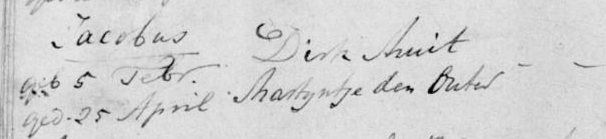 Jacobus Dirk Smit
geb 5 Febr. Martyntje den Outer
ged. 25 April